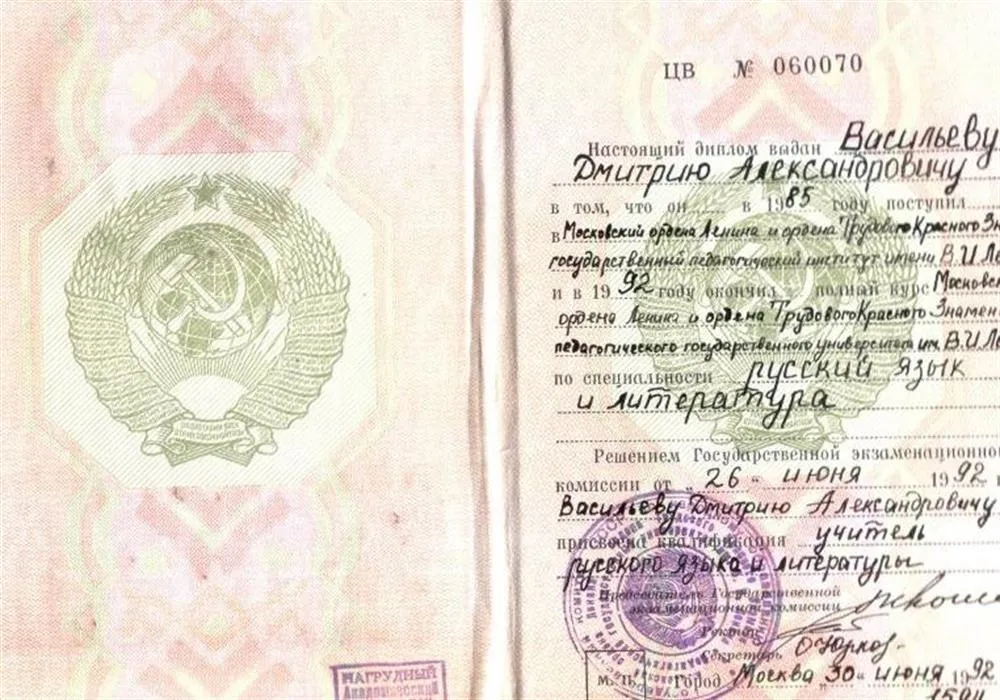 ЦВ № 060070
Настоящий диплом выдан Васильеву
Дмитрию Александровичу
в том, что он в 1985 году поступил
в Московский ордена Ленина и ордена Трудового Красного Зн
государственный педагогический институт имени В.И Ле
и в 1992 году окончил полный курс Московс
ордена Ленина и ордена Трудового Красного Знамени
педагогического государственного университета им. В.И Ле
по специальности русский язык
и литература
Решением Государственной экзаменационно
комиссии от „26“ июня 1992 г
Васильеву Дмитрию Александровичу
присвоена квалификация учитель
русского языка и литературы
Председатель Государственной
экзаменационной комиссии
Ректор
Секретарь
М. П. Город Москва 30 июня 1992
НАГРУДНЫЙ